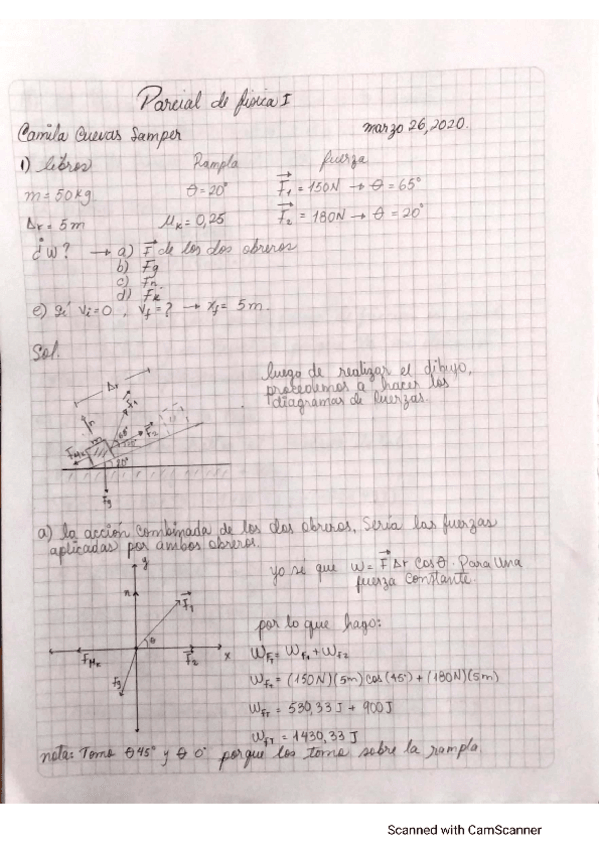 Parcial de física I
Camila Cuevas Samper
marzo 26, 2020.
1) libros Rampla fuerza
m = 50kg. θ = 20° F₁ = 150N → θ = 65°
Δr = 5m μk = 0,25 F₂ = 180N → θ = 20°
¿W? → a) F de los dos obreros
b) Fg
c) Fn.
d) Fk
e) Si vi = 0, vf = ? → xf = 5m.
Sol.
luego de realizar el dibujo,
procedemos a hacer los
diagramas de fuerzas.
Δr
n
F₁
m
65°
F₂
20°
Fg
a) la acción combinada de los dos obreros, Sería las fuerzas
aplicadas por ambos obreros.
yo sí que W = F Δr Cosθ. Para Una
fuerza constante.
y
n
F₁
θ
F₂
x
Fμk
Fg
por lo que hago:
WFT = WF1 + WF2
WFT = (150N)(5m)cos(45°) + (180N)(5m)
WFT = 530,33J + 900J
WFT = 1430,33J
nota: Tomo θ45° y θ 0° porque los tomo sobre la rampla.
Scanned with CamScanner